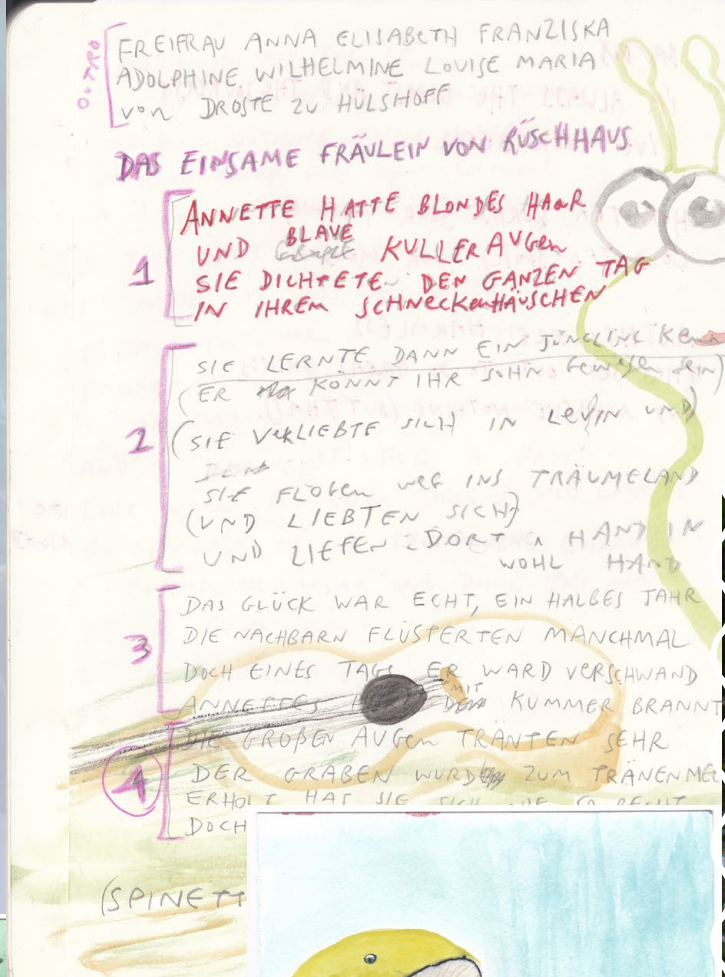 OUTRO
FREIFRAU ANNA ELISABETH FRANZISKA
ADOLPHINE WILHELMINE LOUISE MARIA
von DROSTE ZU HÜLSHOFF
DAS EINSAME FRÄULEIN VON RÜSCHHAUS
1
ANNETTE HATTE BLONDES HAAR
UND BLAUE KULLERAUGEN
SIE DICHTETE DEN GANZEN TAG
IN IHREM SCHNECKENHÄUSCHEN
2
SIE LERNTE DANN EIN JÜNGLING
(ER KÖNNT IHR SOHN GEWESEN SEIN)
(SIE VERLIEBTE SICH IN LEVIN UND)
SIE FLOGEN WEG INS TRÄUMELAND
(UND LIEBTEN SICH)
UND LIEFEN DORT HAND IN
WOHL HAND
3
DAS GLÜCK WAR ECHT, EIN HALBES JAHR
DIE NACHBARN FLÜSTERTEN MANCHMAL
DOCH EINES TAGS ER WARD VERSCHWAND
ANNETTES MIT KUMMER BRANNT
4
DIE GROßEN AUGEN TRÄNTEN SEHR
DER GRABEN WURD ZUM
ERHOLT HAT SIE SICH
DOCH
(SPINETT